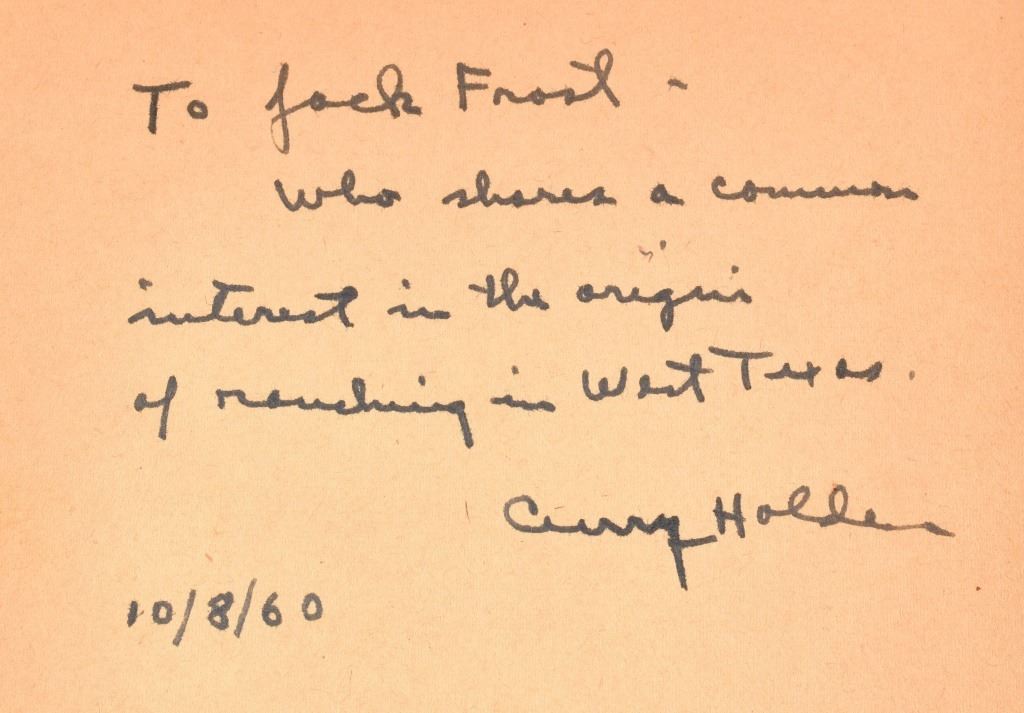 To Jack Frost -
who shares a common
interest in the origin
of ranching in West Texas.
Curry Holden
10/8/60